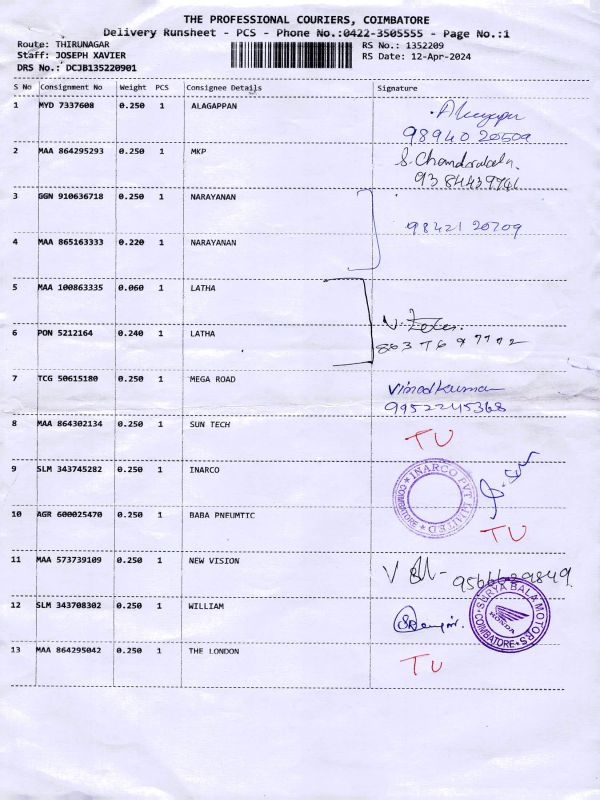 THE PROFESSIONAL COURIERS, COIMBATORE
Delivery Runsheet - PCS - Phone No.:0422-3505555 - Page No.:1
Route: THIRUNAGAR RS No.: 1352209
Staff: JOSEPH XAVIER RS Date: 12-Apr-2024
DRS No.: DCJB135220901
S No Consignment No Weight PCS Consignee Details Signature
1 MYD 7337608 0.250 1 ALAGAPPAN
98940 20509
2 MAA 864295293 0.250 1 MKP S. Chandrakala
3 GGN 910636718 0.250 1 NARAYANAN
98421 20709
4 MAA 865163333 0.220 1 NARAYANAN
5 MAA 100863335 0.060 1 LATHA
6 PON 5212164 0.240 1 LATHA
7 TCG 50615180 0.250 1 MEGA ROAD Vinodkumar
9952245368
8 MAA 864302134 0.250 1 SUN TECH TU
9 SLM 343745282 0.250 1 INARCO INARCO PVT LIMITED COIMBATORE
10 AGR 600025470 0.250 1 BABA PNEUMTIC TU
11 MAA 573739109 0.250 1 NEW VISION
12 SLM 343708302 0.250 1 WILLIAM SURYA BALA MOTORS HONDA COIMBATORE
13 MAA 864295042 0.250 1 THE LONDON TU